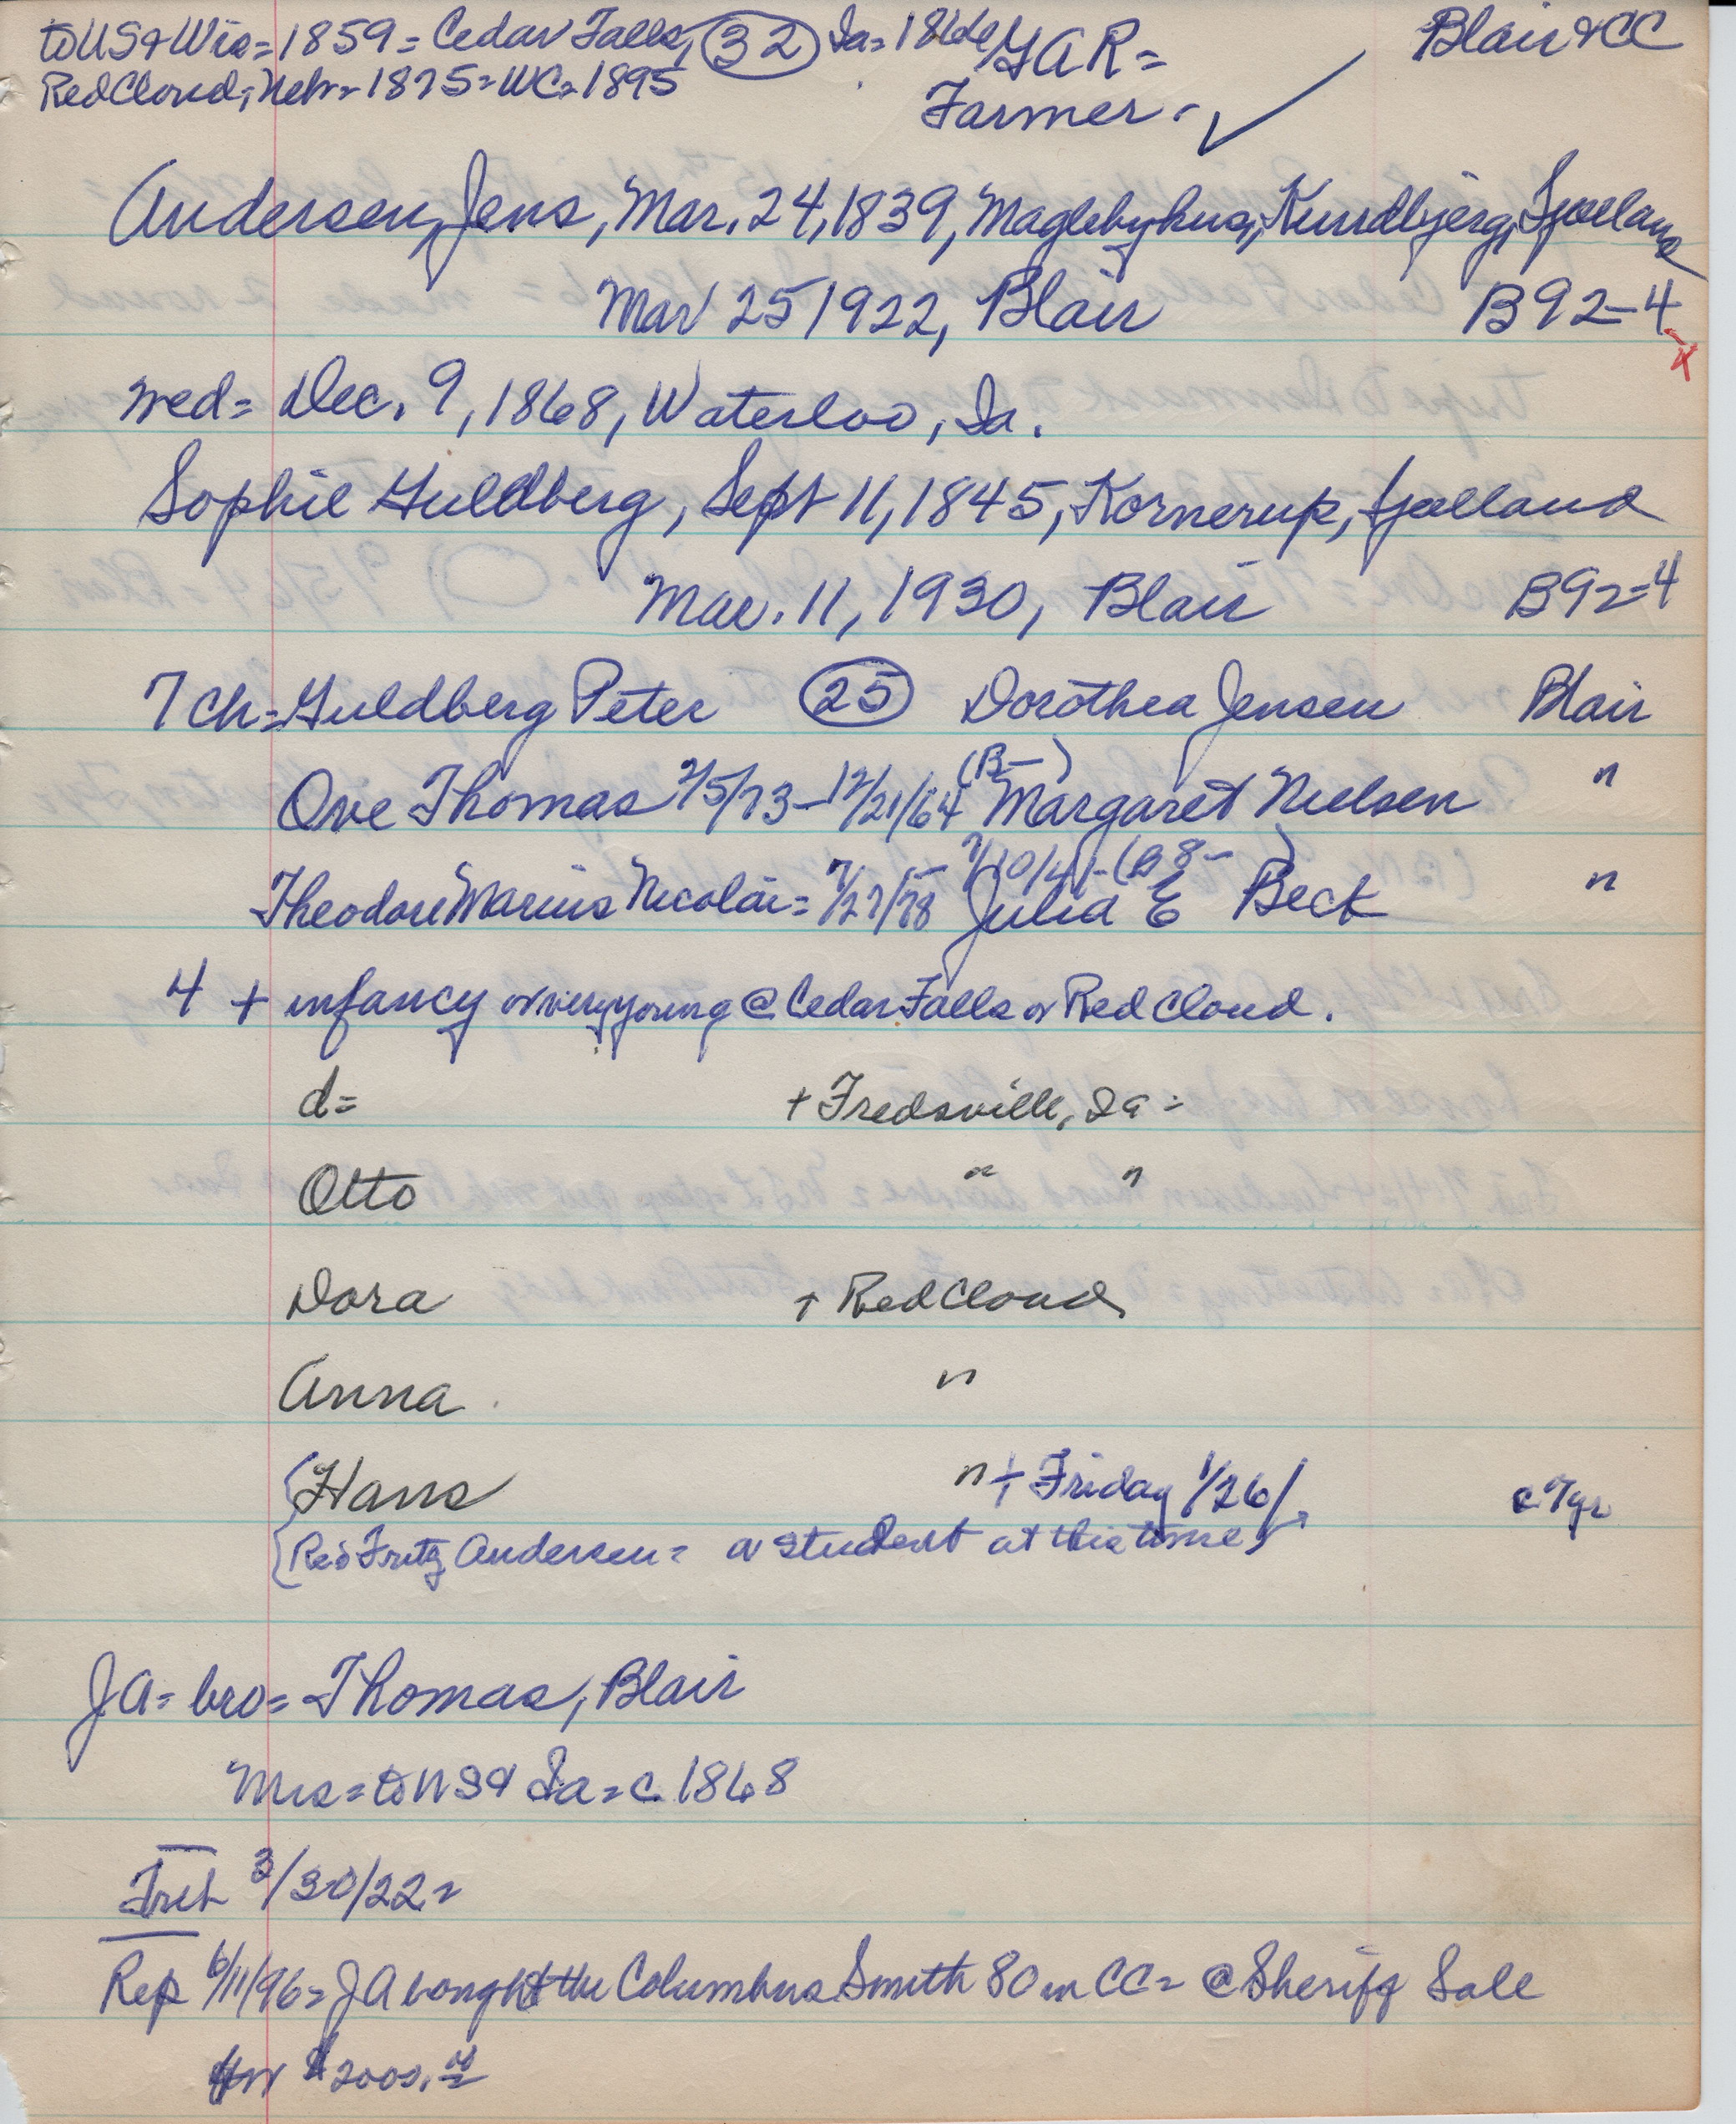 to US & Wis = 1859 = Cedar Falls, (32) Ia = 1866 / GAR = Blair & CC
Red Cloud, Nebr = 1875 = WC = 1895
Farmer - ✓
Andersen, Jens, Mar. 24, 1839, Maglebyhus, Kundbjerg, Sjaelland
Mar 25 1922, Blair B92-4 x
wed = Dec. 9, 1868, Waterloo, Ia.
Sophie Guldberg, Sept 11, 1845, Kornerup, Sjaelland
Mar. 11, 1930, Blair B92-4
7 ch = Guldberg Peter (25) Dorothea Jensen Blair
(B- )
Ove Thomas 2/5/73 - 12/21/64 Margaret Nielsen "
7/10/41 - (B8- )
Theodore Marius Nicolai = 7/27/78 Julia E Beck "
4 + infancy or very young @ Cedar Falls or Red Cloud.
d = + Fredsville, Ia =
Otto " "
Dora + Red Cloud
Anna "
{Hans " + Friday 1/26/ c 7 yr
{Rev Fritz Andersen = a student at this time
JA = bro = Thomas, Blair
Mrs = to US & Ia = c. 1868
3/30/22 =
Rep 6/11/96 = JA bought the Columbus Smith 80 in CC = @ Sheriff Sale
for $2000.00